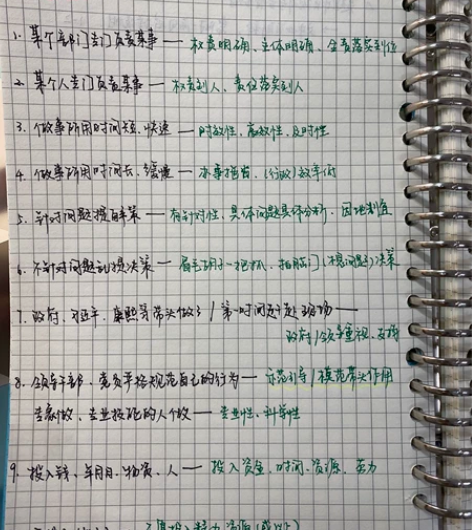 1. 某个部门专门负责某事 — 权责明确、主体明确、全责落实到位
2. 某个人专门负责某事 — 权责到人、责任落实到人
3. 做事所用时间短、快速 — 时效性、高效性、及时性
4. 做事所用时间长、缓慢 — 办事拖沓、(行政)效率低
5. 针对问题提决策 — 有针对性、具体问题具体分析、因地制宜
6. 不针对问题乱提决策 — 眉毛胡子一把抓、拍脑门(提问题)决策
7. 政府、等带头做了 / 第一时间赶赴现场 —
政府/领导重视、支持
8. 领导干部、党员严格规范自己的行为 — 示范引导/模范带头作用
专家做、专业技能的人做 — 专业性、科学性
9. 投入钱、年月日、物资、人 — 投入资金、时间、资源、